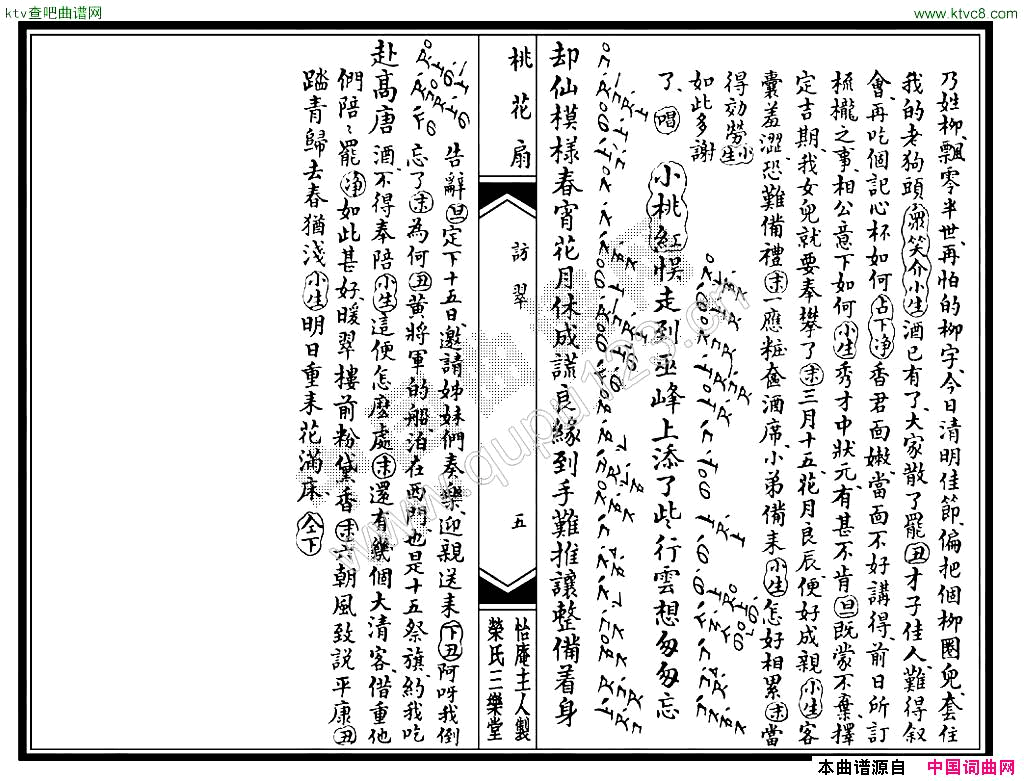 ktv查吧曲谱网
www.ktvc8.com
乃姓柳、飄零半世、再怕的柳字、今日清明佳節、偏把個柳圈兒、套住
我的老狗頭、衆笑介小生酒已有了、大家散了罷、丑才子佳人、難得叙
會、再吃個記心杯如何、占下淨香君面嫩、當面不好講得、前日所訂
梳櫳之事、相公意下如何、小生秀才中狀元、有甚不肯、旦既蒙不棄、擇
定吉期、我女兒就要奉攀了、末三月十五、花月良辰、便好成親、小生客
囊羞澀、恐難備禮、末一應粧奩酒席、小弟備来、小生怎好相累、末當
得効勞、小生
如此多謝
了、唱
小桃紅悞走到巫峰上添了些行雲想匆匆忘
却仙模樣春宵花月休成謊良緣到手難推讓整備着身
桃花扇
訪翠
五
怡庵主人製
榮氏三樂堂
赴高唐
告辭、旦定下十五日、邀請姊妹們奏樂、迎親送来、下丑阿呀、我倒
忘了、末為何、丑黃將軍的船泊在西門、也是十五祭旗、約我吃
酒、不得奉陪、小生這便怎麼處、末還有幾個大清客、借重他
們陪陪罷、淨如此甚好、暖翠樓前粉黛香、末六朝風致説平康、丑
踏青歸去春猶淺、小生明日重来花滿床、仝下
www.qupu123.cn
本曲谱源自
中国词曲网